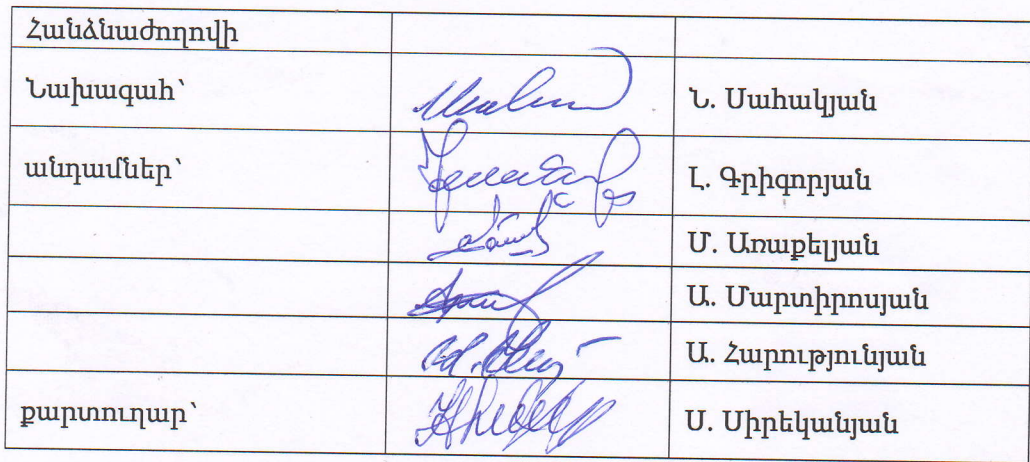 Հանձնաժողովի
Նախագահ՝ Ն. Սահակյան
անդամներ՝ Լ. Գրիգորյան
Մ. Առաքելյան
Ա. Մարտիրոսյան
Ա. Հարությունյան
քարտուղար՝ Ս. Սիրեկանյան